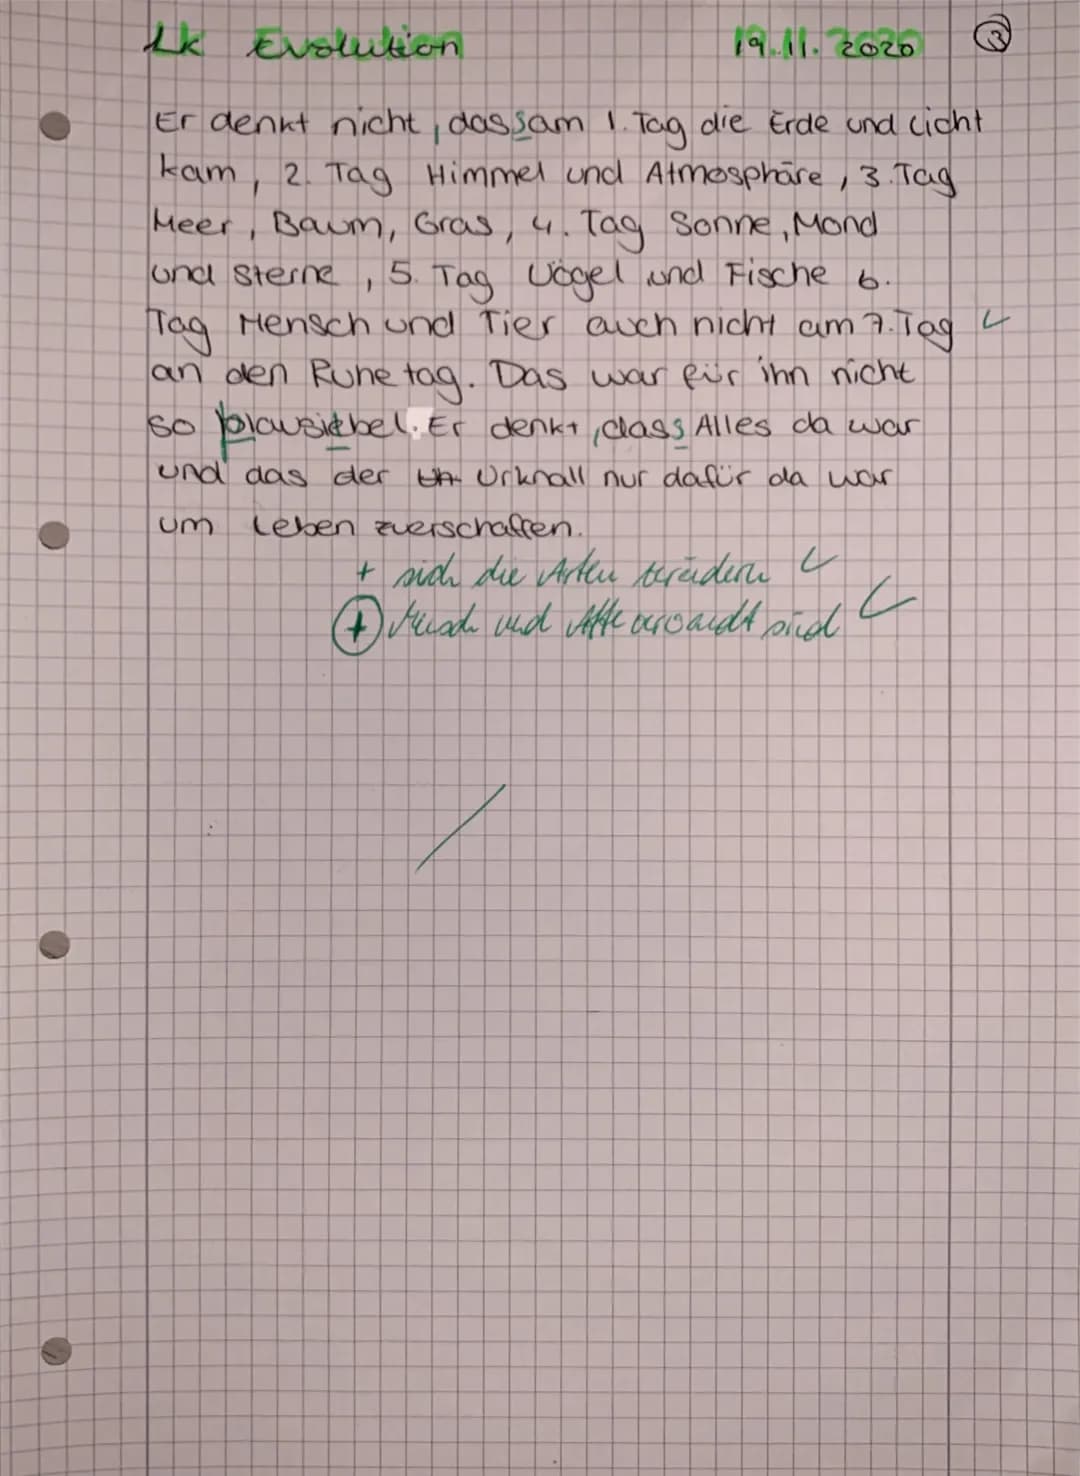 Lk Evolution 19.11.2020 3
Er denkt nicht, dass am 1. Tag die Erde und Licht
kam, 2. Tag Himmel und Atmosphäre, 3. Tag
Meer, Baum, Gras, 4. Tag Sonne, Mond
und Sterne, 5. Tag Vögel und Fische 6.
Tag Mensch und Tier auch nicht am 7. Tag
an den Ruhetag. Das war für ihn nicht
so plausibel. Er denkt, dass Alles da war
und das der Urknall nur dafür da war
um Leben zuerschaffen.
+ sich die Arten verändern
+ Mensch und Affe verwandt sind